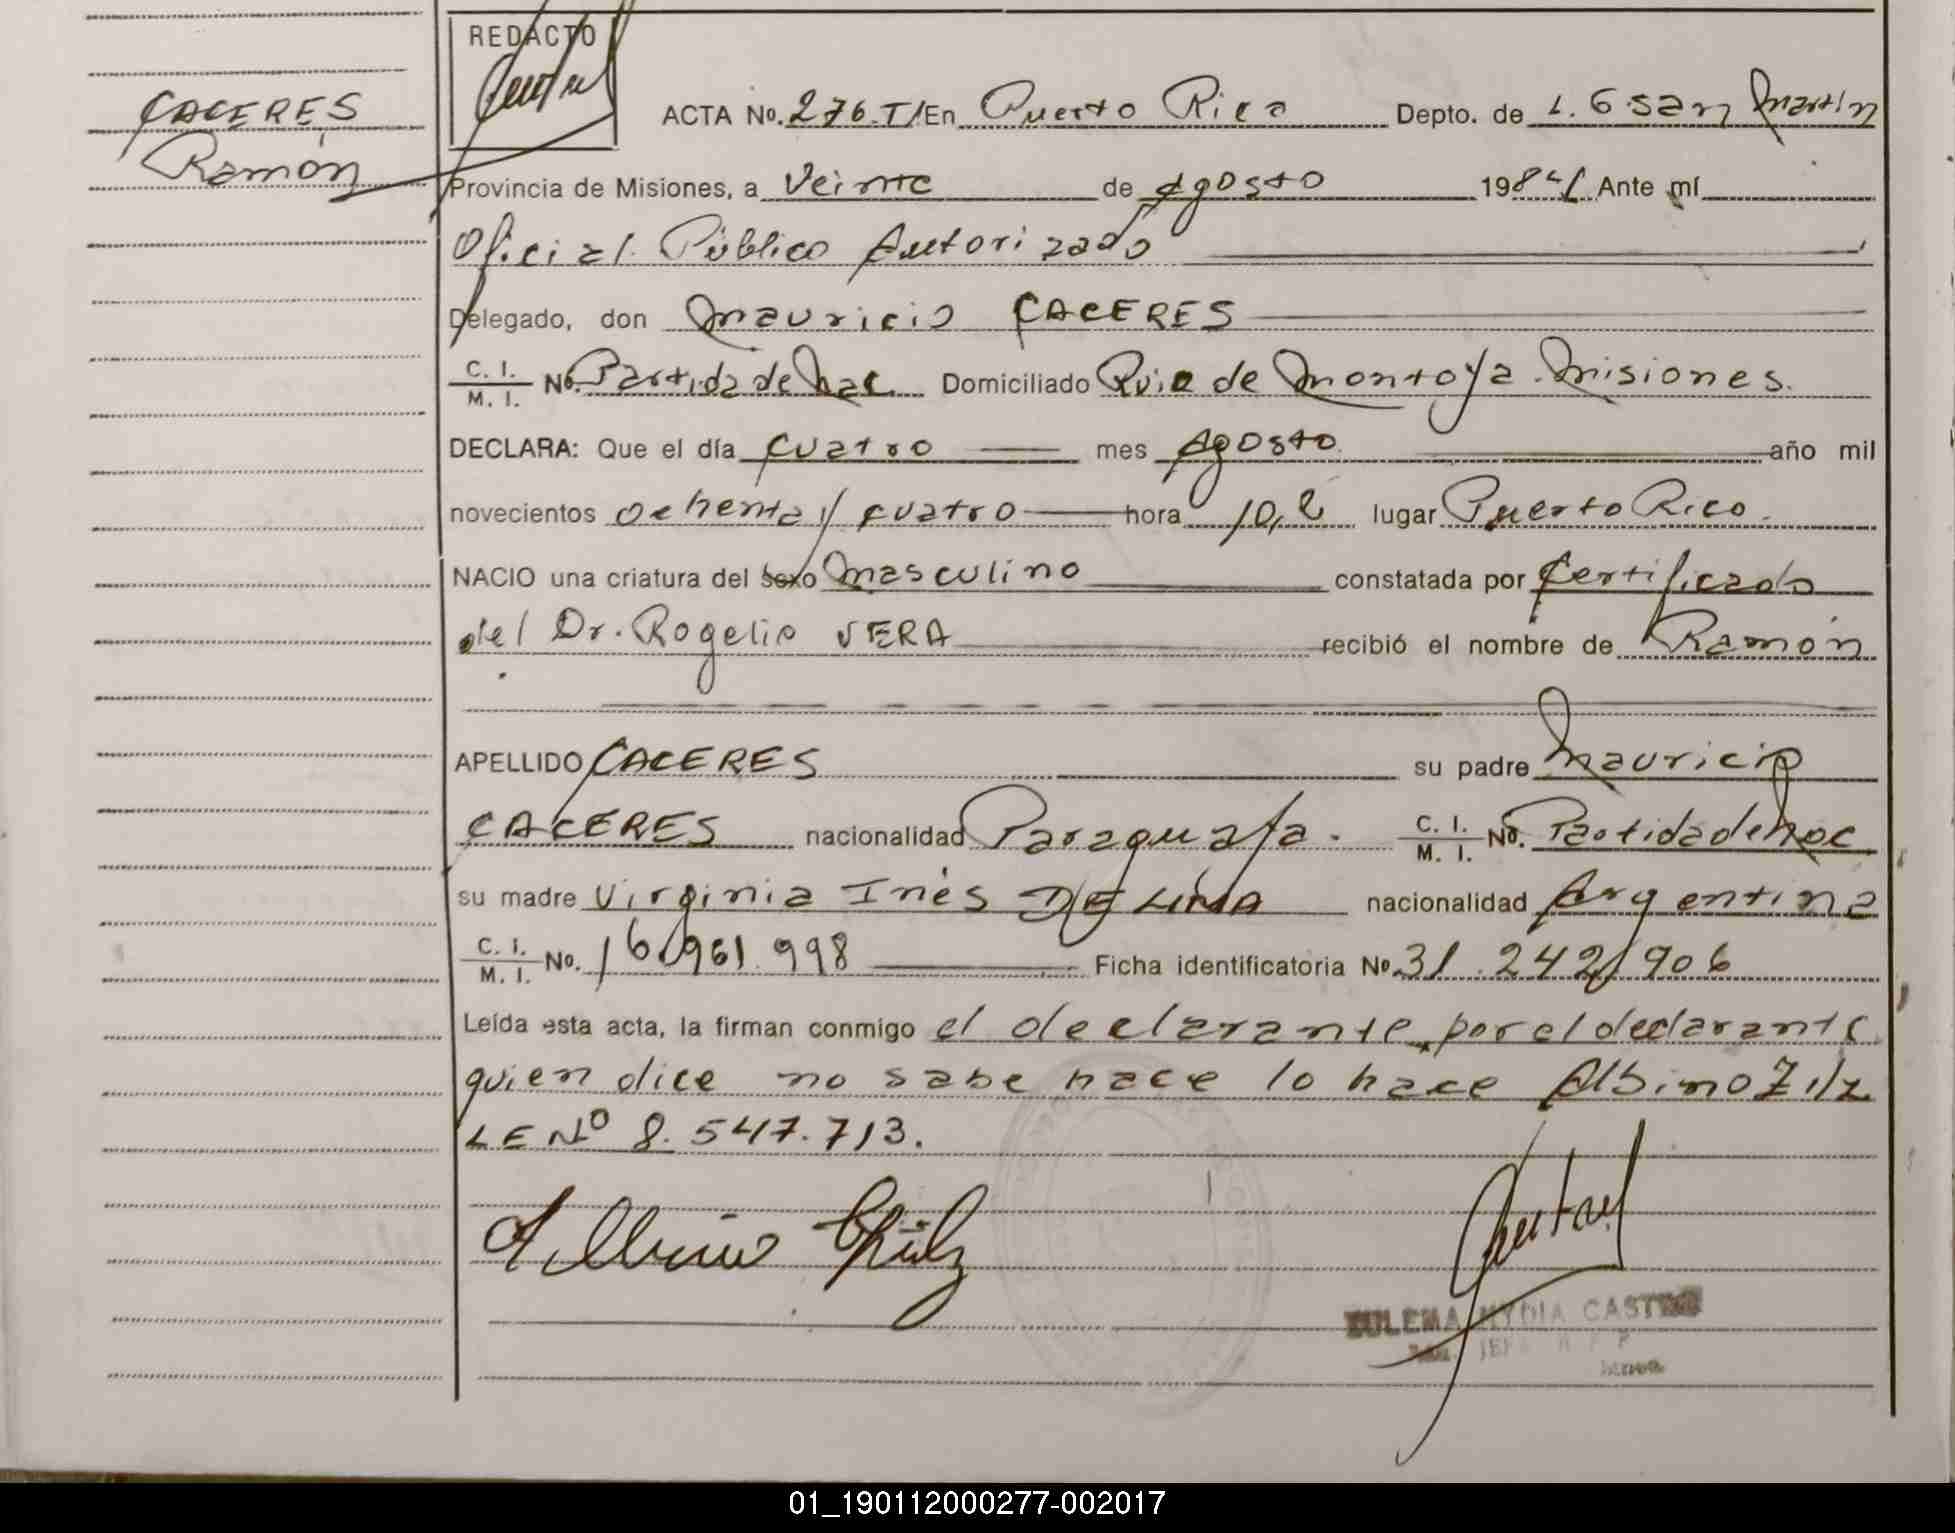 REDACTO
CACERES
Ramón
ACTA No. 276.T/En Puerto Rico Depto. de L. G San Martín
Provincia de Misiones, a Veinte de Agosto 1984 Ante mí
Oficial Público Autorizado
Delegado, don Mauricio CACERES
C. I. / M. I. No. Partida de Nac. Domiciliado Ruiz de Montoya. Misiones.
DECLARA: Que el día cuatro mes Agosto año mil
novecientos ochenta y cuatro hora 10, lugar Puerto Rico.
NACIO una criatura del sexo masculino constatada por Certificado
del Dr. Rogelio VERA recibió el nombre de Ramón
APELLIDO CACERES su padre Mauricio
CACERES nacionalidad Paraguaya. C. I. / M. I. No. Partida de Nac
su madre Virginia Inés DE LIMA nacionalidad Argentina
C. I. / M. I. No. 16.961.998 Ficha identificatoria No. 31.242.906
Leída esta acta, la firman conmigo el declarante, por el declarante
quien dice no sabe hace lo hace Albino Zilz
LE Nº 8.547.713.
Albino
NYDIA CASTRO
01_190112000277-002017